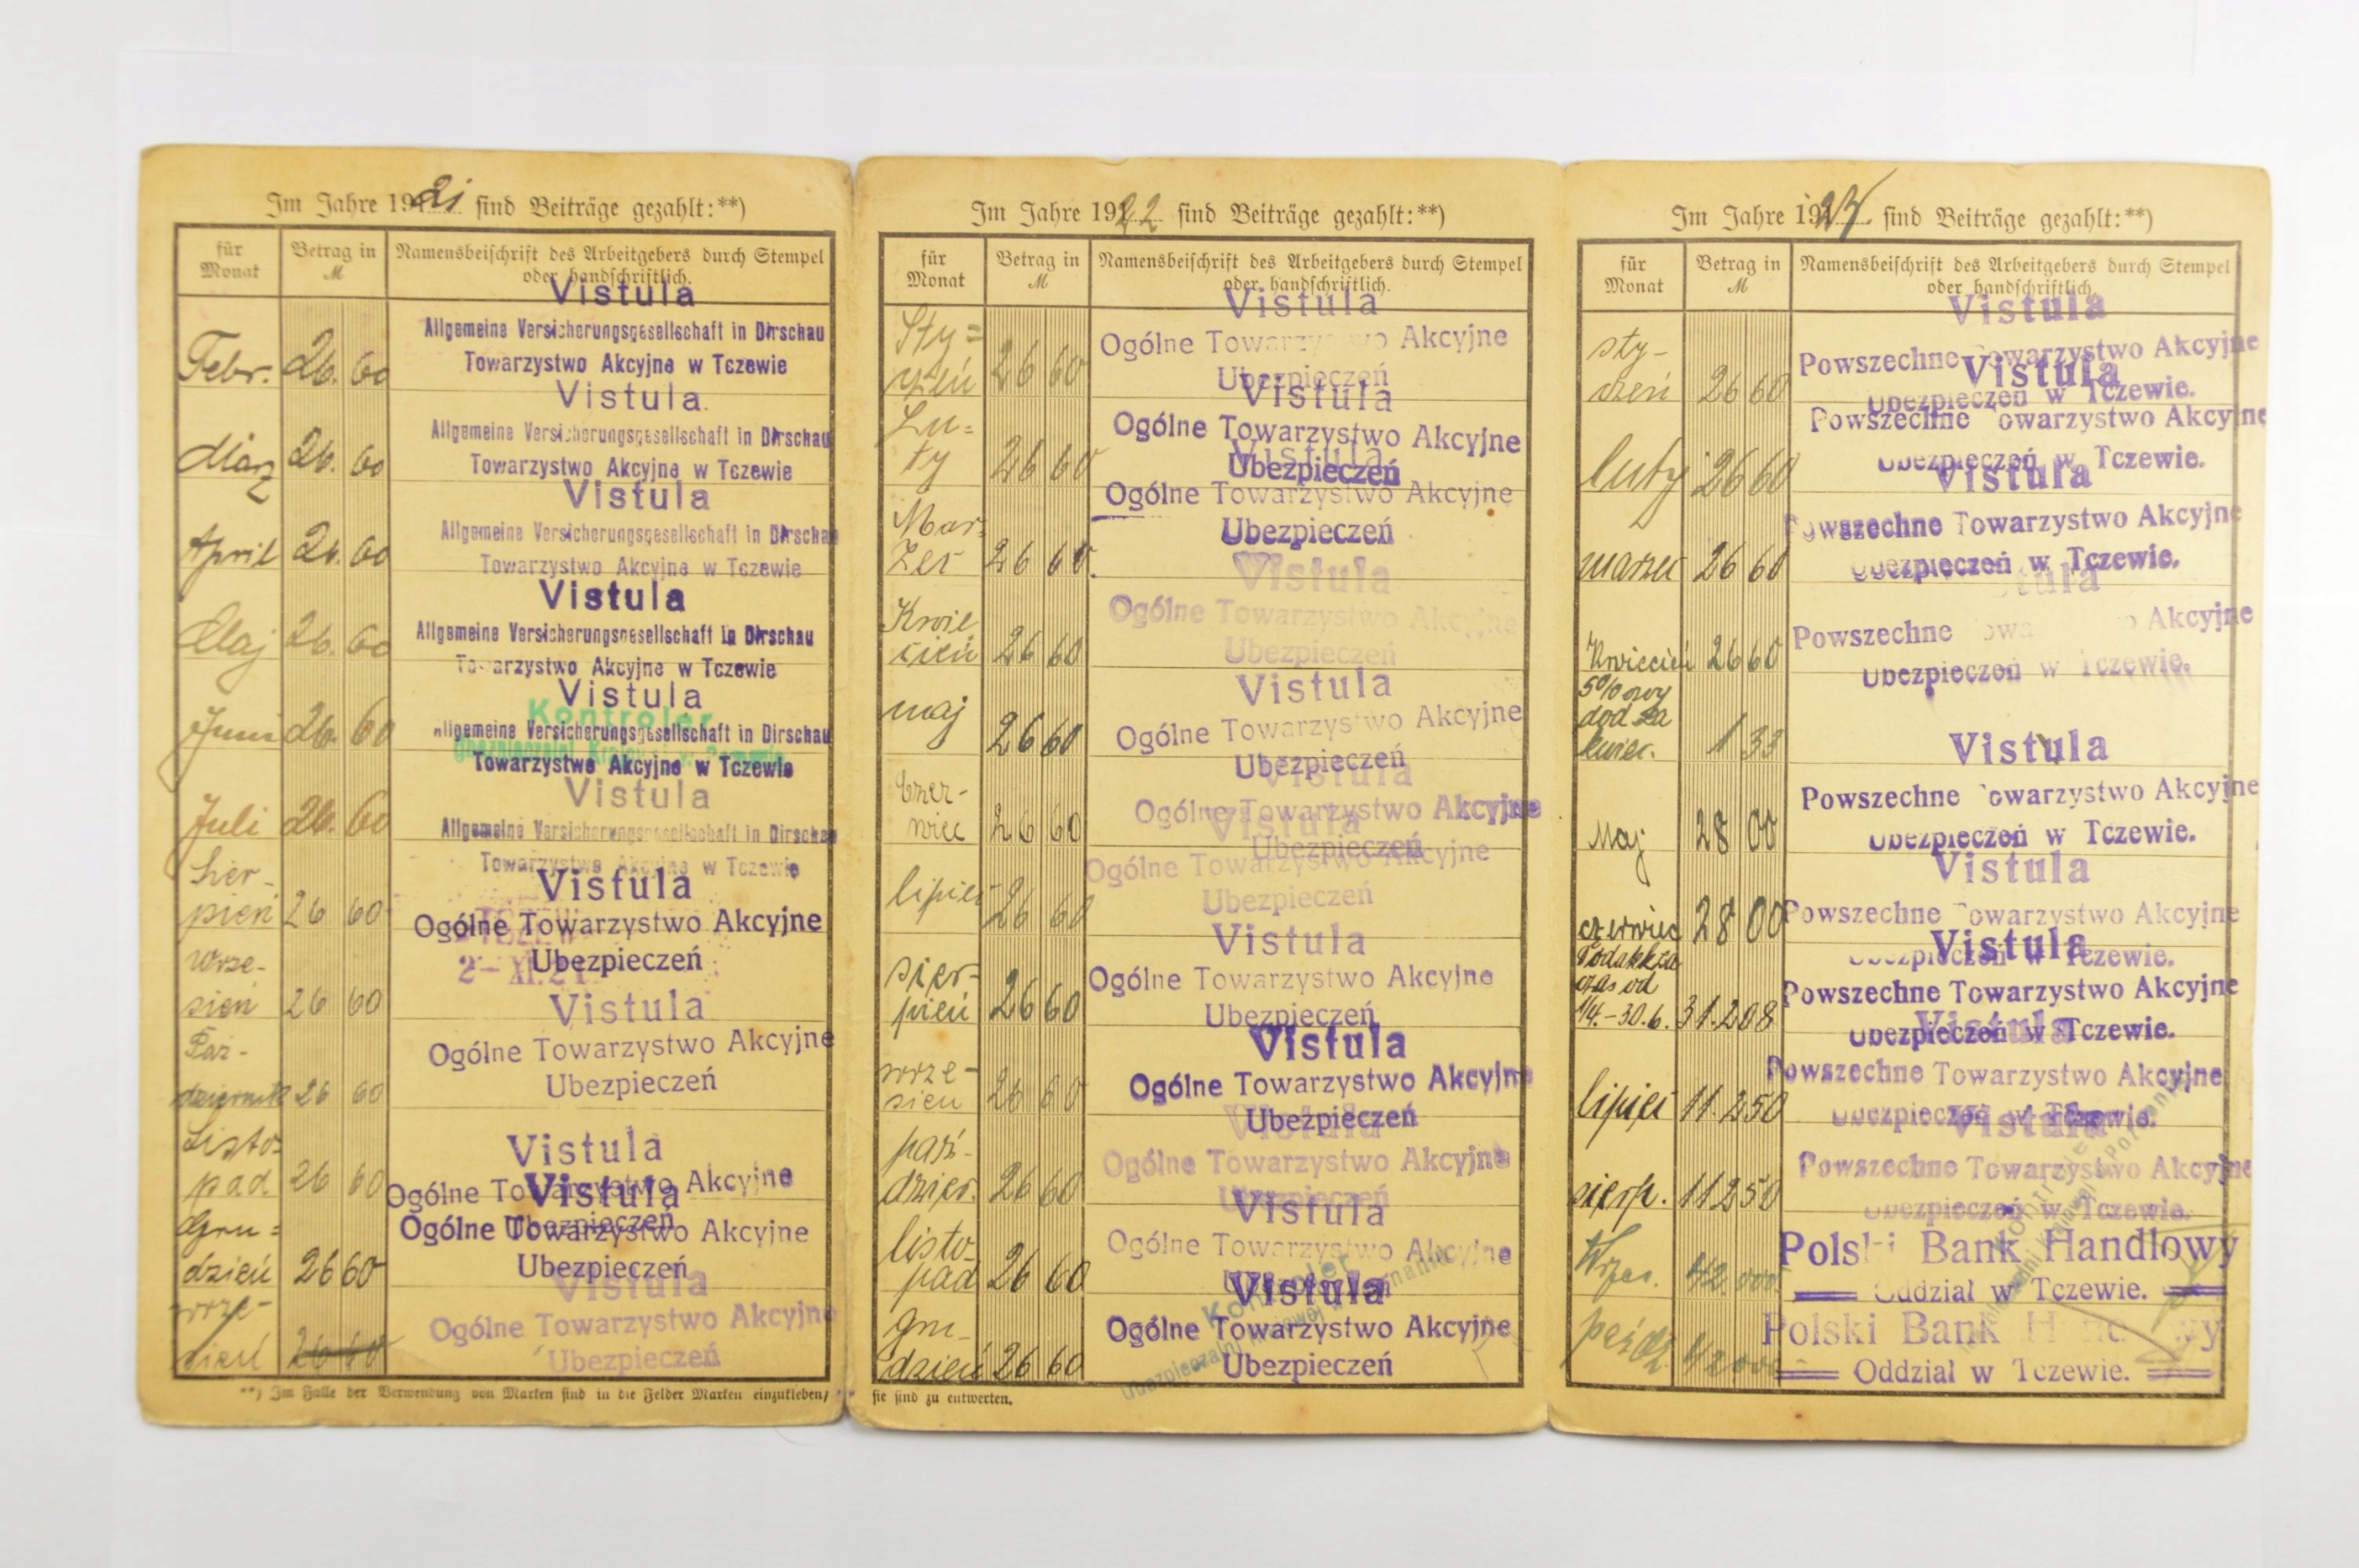 Im Jahre 1921 sind Beiträge gezahlt:**)
für Monat
Betrag in M
Namensbeischrift des Arbeitgebers durch Stempel
oder handschriftlich.
Vistula
Allgemeine Versicherungsgesellschaft in Dirschau
Febr. 26. 60
Towarzystwo Akcyjne w Tczewie
Vistula
Allgemeine Versicherungsgesellschaft in Dirschau
März 26. 60
Towarzystwo Akcyjne w Tczewie
Vistula
Allgemeine Versicherungsgesellschaft in Dirschau
April 26. 60
Towarzystwo Akcyjne w Tczewie
Vistula
Allgemeine Versicherungsgesellschaft in Dirschau
Maj 26. 60
Towarzystwo Akcyjne w Tczewie
Vistula
Kontroler
Allgemeine Versicherungsgesellschaft in Dirschau
Juni 26. 60
Towarzystwo Akcyjne w Tczewie
Vistula
Allgemeine Versicherungsgesellschaft in Dirschau
Juli 26. 60
Towarzystwo Akcyjne w Tczewie
Vistula
Sier-
pień 26 60
Ogólne Towarzystwo Akcyjne
Ubezpieczeń
2-XI.21
Wrze-
sień 26 60
Vistula
Ogólne Towarzystwo Akcyjne
Ubezpieczeń
Paź-
dziernik 26 60
Listo-
pad 26 60
Vistula
Ogólne Towarzystwo Akcyjne
Ubezpieczeń
Gru=
dzień 26 60
Vistula
Ogólne Towarzystwo Akcyjne
Ubezpieczeń
wrze-
sień 26 60
Vistula
Ogólne Towarzystwo Akcyjne
Ubezpieczeń
**) Im Falle der Verwendung von Marken sind in die Felder Marken einzukleben;
Im Jahre 1922 sind Beiträge gezahlt:**)
für Monat
Betrag in M
Namensbeischrift des Arbeitgebers durch Stempel
oder handschriftlich.
Vistula
Sty=
czeń 26 60
Ogólne Towarzystwo Akcyjne
Ubezpieczeń
Vistula
Lu=
ty 26 60
Ogólne Towarzystwo Akcyjne
Ubezpieczeń
Vistula
Mar-
zec 26 60
Ogólne Towarzystwo Akcyjne
Ubezpieczeń
Vistula
Kwie
cień 26 60
Ogólne Towarzystwo Akcyjne
Ubezpieczeń
Vistula
maj 26 60
Ogólne Towarzystwo Akcyjne
Ubezpieczeń
Vistula
Czer-
wiec 26 60
Ogólne Towarzystwo Akcyjne
Ubezpieczeń
Vistula
lipiec 26 60
Ogólne Towarzystwo Akcyjne
Ubezpieczeń
Vistula
sier-
pień 26 60
Ogólne Towarzystwo Akcyjne
Ubezpieczeń
Vistula
wrze-
sień 26 60
Ogólne Towarzystwo Akcyjne
Ubezpieczeń
Vistula
paź-
dzier. 26 60
Ogólne Towarzystwo Akcyjne
Ubezpieczeń
Vistula
listo-
pad 26 60
Ogólne Towarzystwo Akcyjne
Kontroler
Vistula
gru-
dzień 26 60
Ogólne Towarzystwo Akcyjne
Ubezpieczeń
sie sind zu entwerten.
Im Jahre 1923 sind Beiträge gezahlt:**)
für Monat
Betrag in M
Namensbeischrift des Arbeitgebers durch Stempel
oder handschriftlich.
Vistula
sty-
czeń 26 60
Powszechne Towarzystwo Akcyjne
Ubezpieczeń w Tczewie.
Vistula
luty 26 60
Powszechne Towarzystwo Akcyjne
Ubezpieczeń w Tczewie.
Vistula
marzec 26 60
Powszechne Towarzystwo Akcyjne
Ubezpieczeń w Tczewie.
Vistula
Kwiecień 26 60
Powszechne Towarzystwo Akcyjne
Ubezpieczeń w Tczewie.
5% owy
dod za
kwiec. 1 33
Vistula
Maj 28 00
Powszechne Towarzystwo Akcyjne
Ubezpieczeń w Tczewie.
Vistula
czerwiec 28 00
Powszechne Towarzystwo Akcyjne
Ubezpieczeń w Tczewie.
Dodatek za
czas od
1/4.-30.6. 31.208
Vistula
Powszechne Towarzystwo Akcyjne
Ubezpieczeń w Tczewie.
Vistula
lipiec 11.250
Powszechne Towarzystwo Akcyjne
Ubezpieczeń w Tczewie.
Vistula
sierp. 11250
Powszechne Towarzystwo Akcyjne
Ubezpieczeń w Tczewie.
Wrzes. 42.000
Polski Bank Handlowy
Oddział w Tczewie.
paźdz. 42000
Polski Bank Handlowy
Oddział w Tczewie.